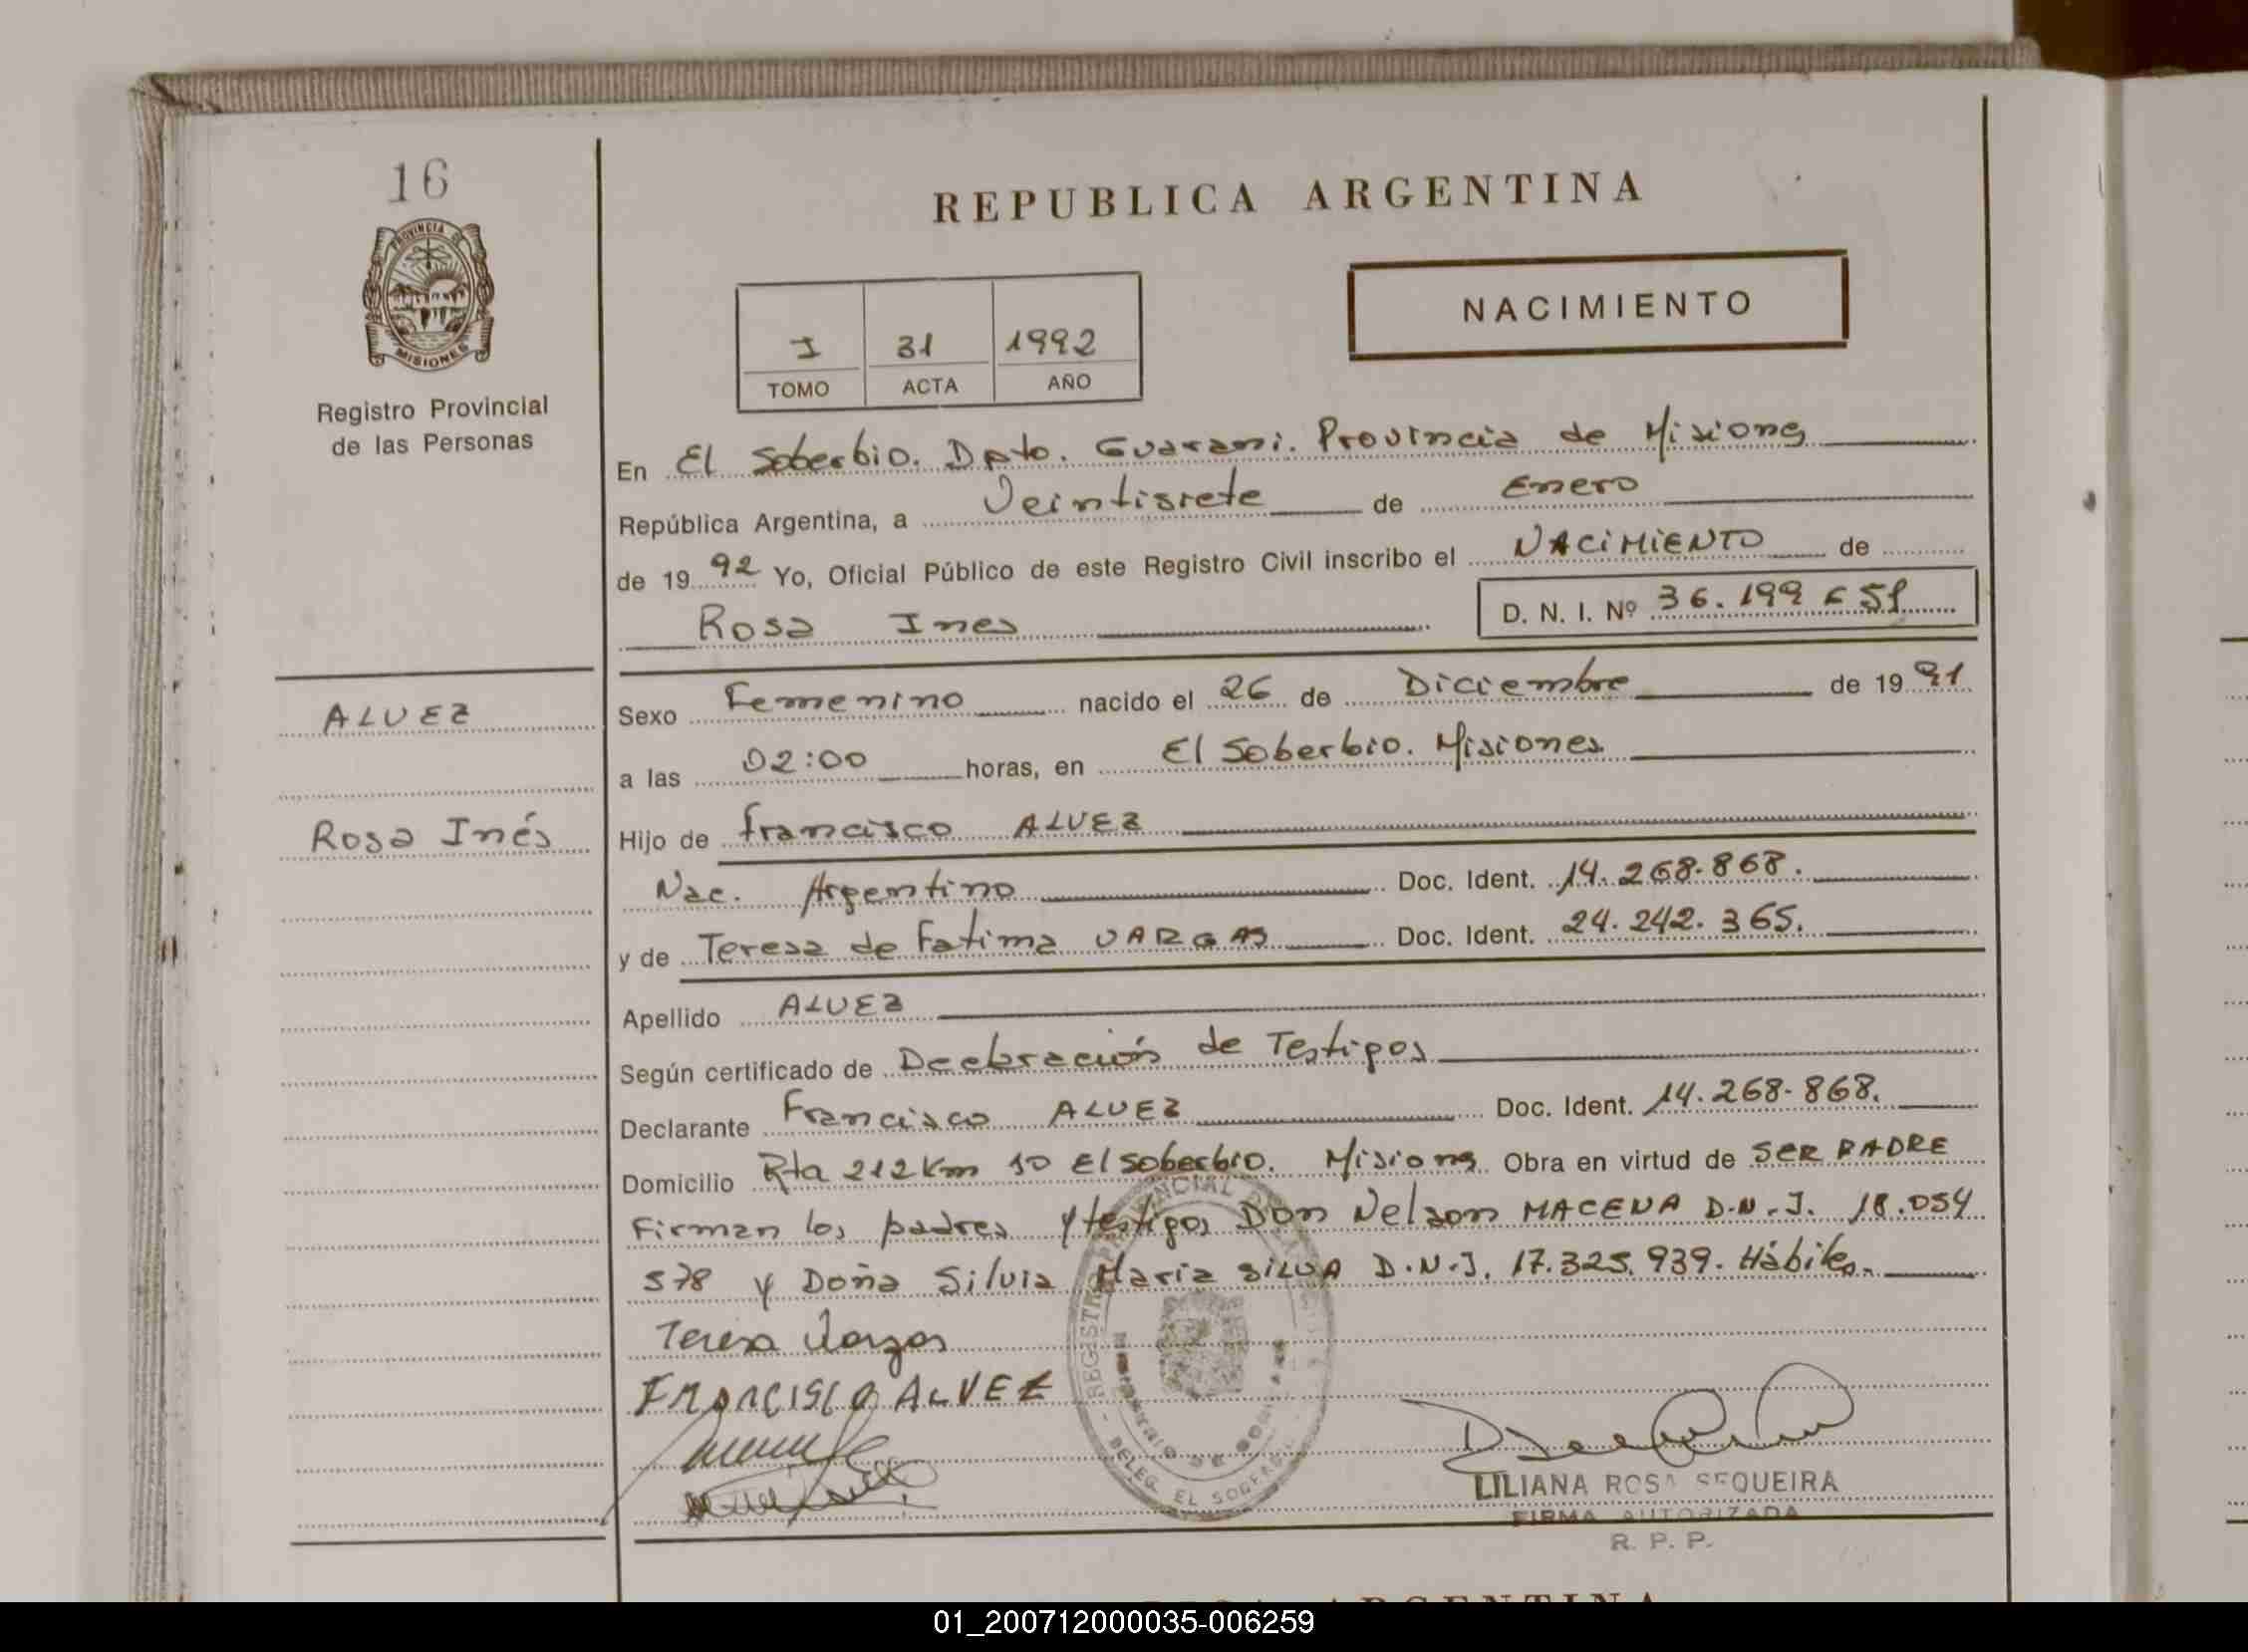 16
REPUBLICA ARGENTINA
PROVINCIA DE
MISIONES
Registro Provincial
de las Personas
NACIMIENTO
I 31 1992
TOMO ACTA AÑO
En El Soberbio. Dpto. Guarani. Provincia de Misiones
República Argentina, a Veintisiete de Enero
de 1992 Yo, Oficial Público de este Registro Civil inscribo el NACIMIENTO de
Rosa Ines D. N. I. Nº 36.199 651
ALVEZ
Rosa Inés
Sexo Femenino nacido el 26 de Diciembre de 1991
a las 02:00 horas, en El Soberbio. Misiones
Hijo de Francisco ALVEZ
Nac. Argentino Doc. Ident. 14.268.868.
y de Teresa de Fatima VARGAS Doc. Ident. 24.242.365.
Apellido ALVEZ
Según certificado de Declaración de Testigos
Declarante Francisco ALVEZ Doc. Ident. 14.268.868.
Domicilio Rta 212 Km 10 El Soberbio. Misiones Obra en virtud de SER PADRE
Firman los padres y testigos Don Nelson MACENA D.N.I. 18.054
578 y Doña Silvia Maria SILVA D.N.I. 17.325.939. Hábiles.
Teresa Vargas
FRANCISCO ALVEZ
LILIANA ROSA SEQUEIRA
FIRMA AUTORIZADA
R. P. P.
ARGENTINA
01_200712000035-006259